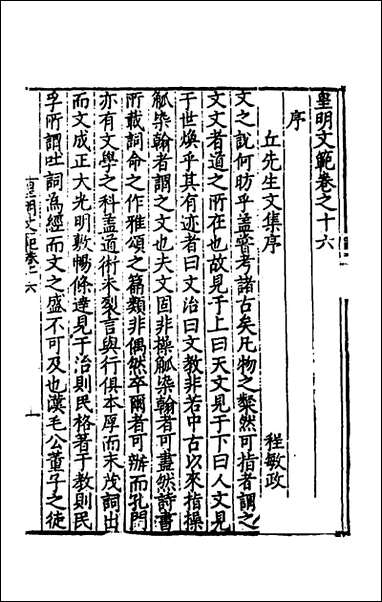 皇明文範卷之十六
序
丘先生文集序
程敏政
文之說何昉乎蓋嘗考諸古矣凡物之粲然可指者謂之
文文者道之所在也故見于上曰天文見于下曰人文見
于世煥乎其有迹者曰文治曰文教非若中古以來指操
觚染翰者謂之文也夫文固非操觚染翰者可盡然詩書
所載詞命之作雅頌之篇類非偶然卒爾者可辦而孔門
亦有文學之科盖道術未裂言與行俱本厚而末茂詞出
而文成正大光明敷暢條達見于治則民格著于教則民
孚所謂吐詞為經而文之盛不可及也漢毛公董子之徒
皇明文範卷十六